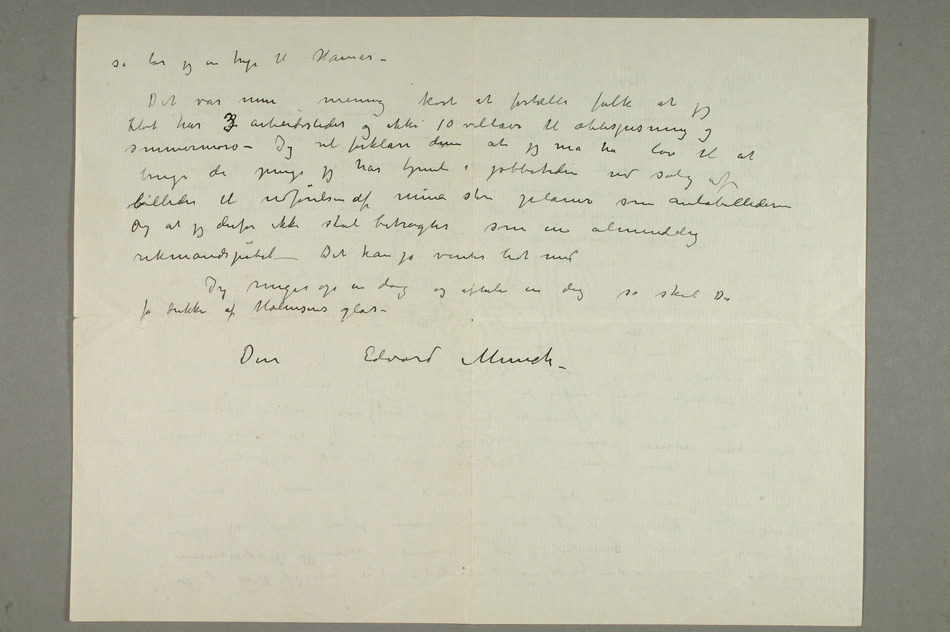 så tar jeg en tripp til Hamar –
Det var min mening kort at fortælle folk at jeg
blot har 3 arbeidssteder og ikke 10 villaer til æblespisning og
sommermoro – Jeg vil forklare dem at jeg må ha lov til at
bruge de penge jeg har tjent i jobbetiden ved salg af
billeder til udførelsen af mine store planer som aulabillederne
Og at jeg derfor ikke skal betragtes som en almindelig
rikmandspøbel – Det kan jo ventes lidt med
Jeg ringer op en dag og aftaler en dag så skal De
få drikke af Holmsens glas –
Din Edvard Munch –